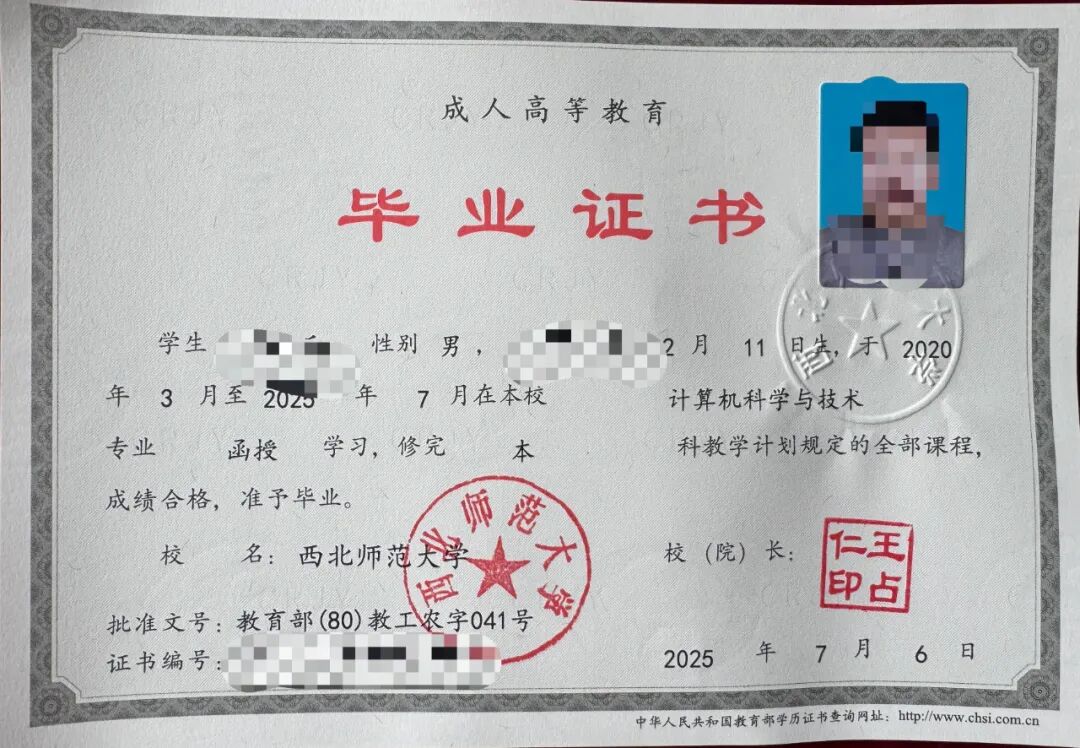 成人高等教育
毕业证书
学生 性别 男, 2 月 11 日生, 于 2020
年 3 月至 2025 年 7 月在本校 计算机科学与技术
专业 函授 学习, 修完 本 科教学计划规定的全部课程,
成绩合格, 准予毕业。
校 名: 西北师范大学
校（院）长:
王占仁印
西北师范大学
批准文号: 教育部(80)教工农字041号
证书编号:
2025 年 7 月 6 日
中华人民共和国教育部学历证书查询网址: http://www.chsi.com.cn